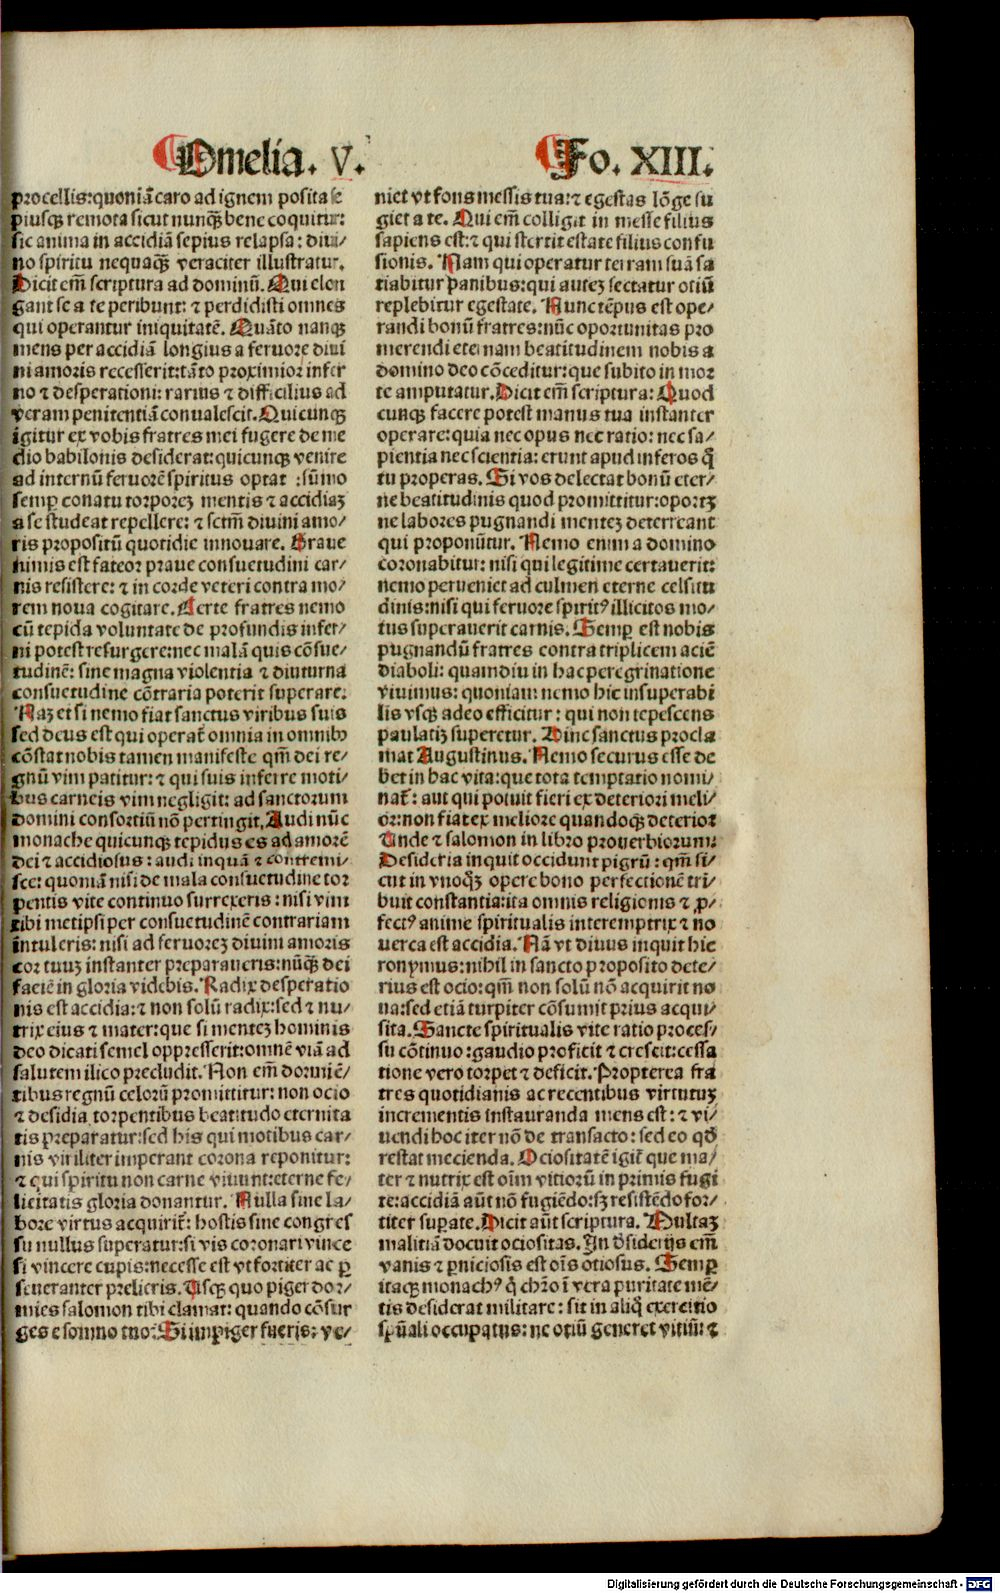 Omelia. V.
Fo. XIII.
procellis: quoniā caro ad ignem posita se
piusqȝ remota sicut nunqȝ bene coquitur:
sic anima in accidiā sepius relapsa: diui/
no spiritu nequaqȝ veraciter illustratur.
Dicit em̄ scriptura ad dominū. Qui elon
gant se a te peribunt: ⁊ perdidisti omnes
qui operantur iniquitatē. Quāto nanqȝ
mens per accidiā longius a feruore diui
ni amoris recesserit: tāto proximior infer
no ⁊ desperationi: rarius ⁊ difficilius ad
veram penitentiā conualescit. Quicunqȝ
igitur ex vobis fratres mei fugere de me
dio babilonis desiderat: quicunqȝ venire
ad internū feruorē spiritus optat: sūmo
semꝑ conatu torporeȝ mentis ⁊ accidiaȝ
a se studeat repellere: ⁊ sctm̄ diuini amo/
ris propositū quotidie innouare. Graue
nimis est fateor praue consuetudini car/
nis resistere: ⁊ in corde veteri contra mo/
rem noua cogitare. Certe fratres nemo
cū tepida voluntate de profundis infer/
ni potest resurgere: nec malā quis cōsue/
tudinē: sine magna violentia ⁊ diuturna
consuetudine cōtraria poterit superare.
Naȝ et si nemo fiat sanctus viribus suis
sed deus est qui operat̄ omnia in omnibꝰ
cōstat nobis tamen manifeste qm̄ dei re/
gnū vim patitur: ⁊ qui suis inferre moti/
bus carneis vim negligit: ad sanctorum
domini consortiū nō pertingit. Audi nūc
monache quicunqȝ tepidus es ad amorē
dei ⁊ accidiosus: audi inquā ⁊ contremi/
sce: quoniā nisi de mala consuetudine tor
pentis vite continuo surrexeris: nisi vim
tibi metipsi per consuetudinē contrariam
intuleris: nisi ad feruoreȝ diuini amoris
cor tuuȝ instanter preparaueris: nūqȝ dei
faciē in gloria videbis. Radix desperatio
nis est accidia: ⁊ non solū radix: sed ⁊ nu/
trix eius ⁊ mater: que si menteȝ hominis
deo dicati semel oppresserit: omnē viā ad
salutem ilico precludit. Non em̄ dormiē/
tibus regnū celorū promittitur: non ocio
⁊ desidia torpentibus beatitudo eternita
tis preparatur: sed his qui motibus car/
nis viriliter imperant corona reponitur:
⁊ qui spiritu non carne viuunt: eterne fe/
licitatis gloria donantur. Nulla sine la/
bore virtus acquirit̄: hostis sine congres
su nullus superatur: si vis coronari vince
si vincere cupis: necesse est vt fortiter ac ꝑ
seueranter prelieris. Usqȝ quo piger dor/
mies salomon tibi clamat: quando cōsur
ges e somno tuo: Si impiger fueris: ve/
niet vt fons messis tua: ⁊ egestas lōge fu
giet a te. Qui em̄ colligit in messe filius
sapiens est: ⁊ qui stertit estate filius confu
sionis. Nam qui operatur terram suā sa
tiabitur panibus: qui auteȝ sectatur otiū
replebitur egestate. Nunc tēpus est ope/
randi bonū fratres: nūc oportunitas pro
merendi eternam beatitudinem nobis a
domino deo cōceditur: que subito in mor
te amputatur. Dicit em̄ scriptura: Quod
cunqȝ facere potest manus tua instanter
operare: quia nec opus nec ratio: nec sa/
pientia nec scientia: erunt apud inferos q̄
tu properas. Si vos delectat bonū eter/
ne beatitudinis quod promittitur: oportȝ
ne labores pugnandi menteȝ deterreant
qui proponūtur. Nemo enim a domino
coronabitur: nisi qui legitime certauerit:
nemo perueniet ad culmen eterne celsitu
dinis: nisi qui feruore spiritꝰ illicitos mo/
tus superauerit carnis. Semꝑ est nobis
pugnandū fratres contra triplicem aciē
diaboli: quamdiu in hac peregrinatione
viuimus: quoniam nemo hic insuperabi
lis vsqȝ adeo efficitur: qui non tepescens
paulatiȝ superetur. Hinc sanctus procla
mat Augustinus. Nemo securus esse de
bet in hac vita: que tota temptatio nomi/
nat̄: aut qui potuit fieri ex deteriori meli/
or: non fiat ex meliore quandoqȝ deterior
Unde ⁊ salomon in libro prouerbiorum:
Desideria inquit occidunt pigrū: qm̄ si/
cut in vnoqȝ opere bono perfectionē tri/
buit constantia: ita omnis religionis ⁊ ꝓ/
fectꝰ anime spiritualis interemptrix ⁊ no
uerca est accidia. Nā vt diuus inquit hie
ronymus: nihil in sancto proposito dete/
rius est ocio: qm̄ non solū nō acquirit no
ua: sed etiā turpiter cōsumit prius acqui/
sita. Sancte spiritualis vite ratio proces/
su cōtinuo: gaudio proficit ⁊ crescit: cessa
tione vero torpet ⁊ deficit. Propterea fra
tres quotidianis ac recentibus virtutuȝ
incrementis instauranda mens est: ⁊ vi/
uendi hoc iter nō de transacto: sed eo qđ
restat meciendа. Ociositatē igit̄ que ma/
ter ⁊ nutrix est oīm vitiorū in primis fugi
te: accidiā aūt nō fugiēdo: sȝ resistēdo for/
titer suꝑate. Dicit aūt scriptura. Multaȝ
malitiā docuit ociositas. In d̄siderijs em̄
vanis ⁊ ꝑniciosis est oīs otiosus. Semꝑ
itaqȝ monachꝰ q̄ chr̄o ī vera puritate mē/
tis desiderat militare: sit in aliq̄ exercitio
spūali occupatus: ne otiū generet vitiū: ⁊
Digitalisierung gefördert durch die Deutsche Forschungsgemeinschaft - DFG